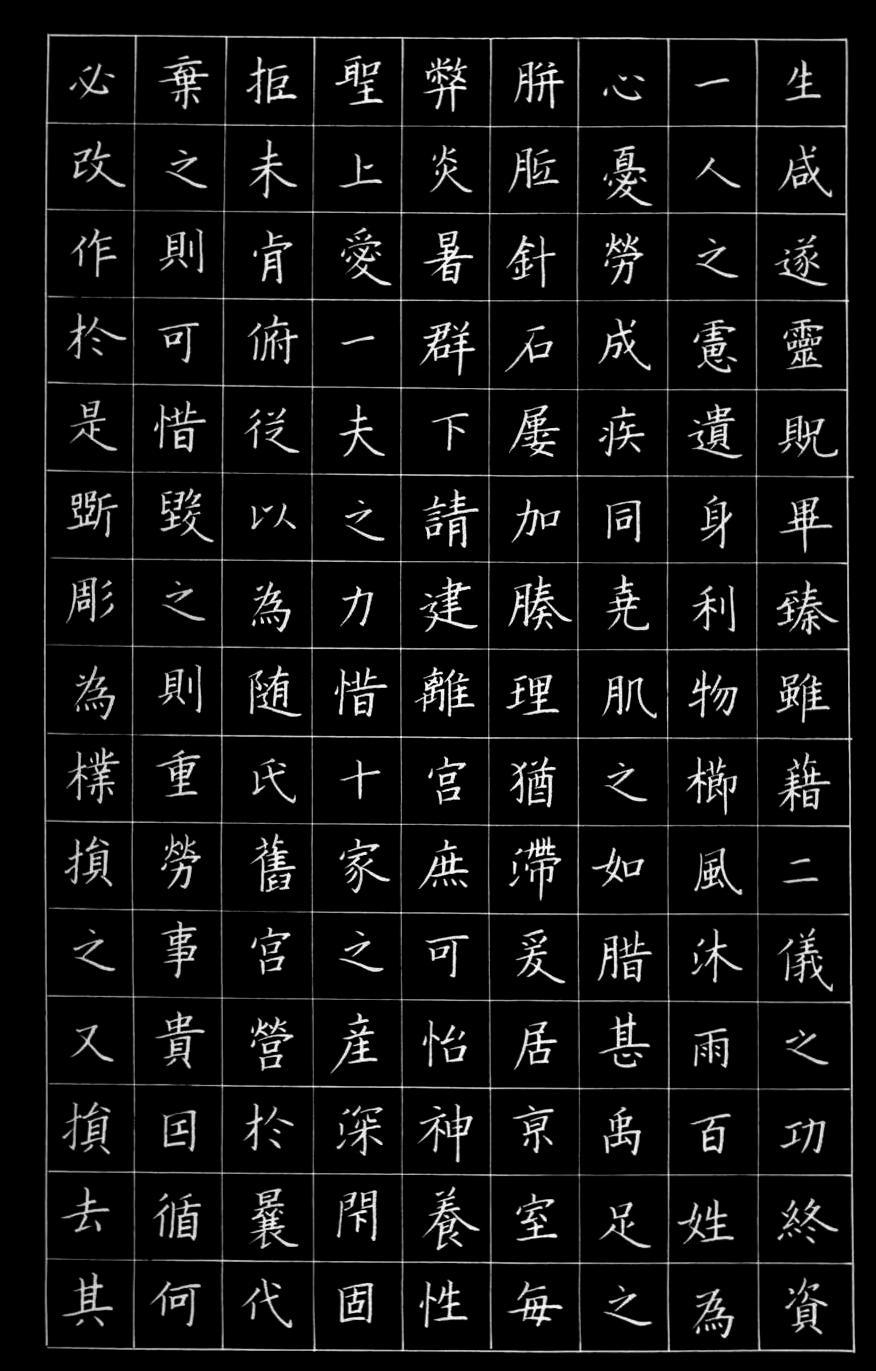 生咸遂靈貺畢臻雖藉二儀之功終資
一人之慮遺身利物櫛風沐雨百姓為
心憂勞成疾同堯肌之如腊甚禹足之
胼胝針石屢加腠理猶滯爰居京室每
弊炎暑群下請建離宮庶可怡神養性
聖上愛一夫之力惜十家之產深閇固
拒未肯俯從以為随氏舊宮營於曩代
棄之則可惜毀之則重勞事貴因循何
必改作於是斲彫為樸損之又損去其